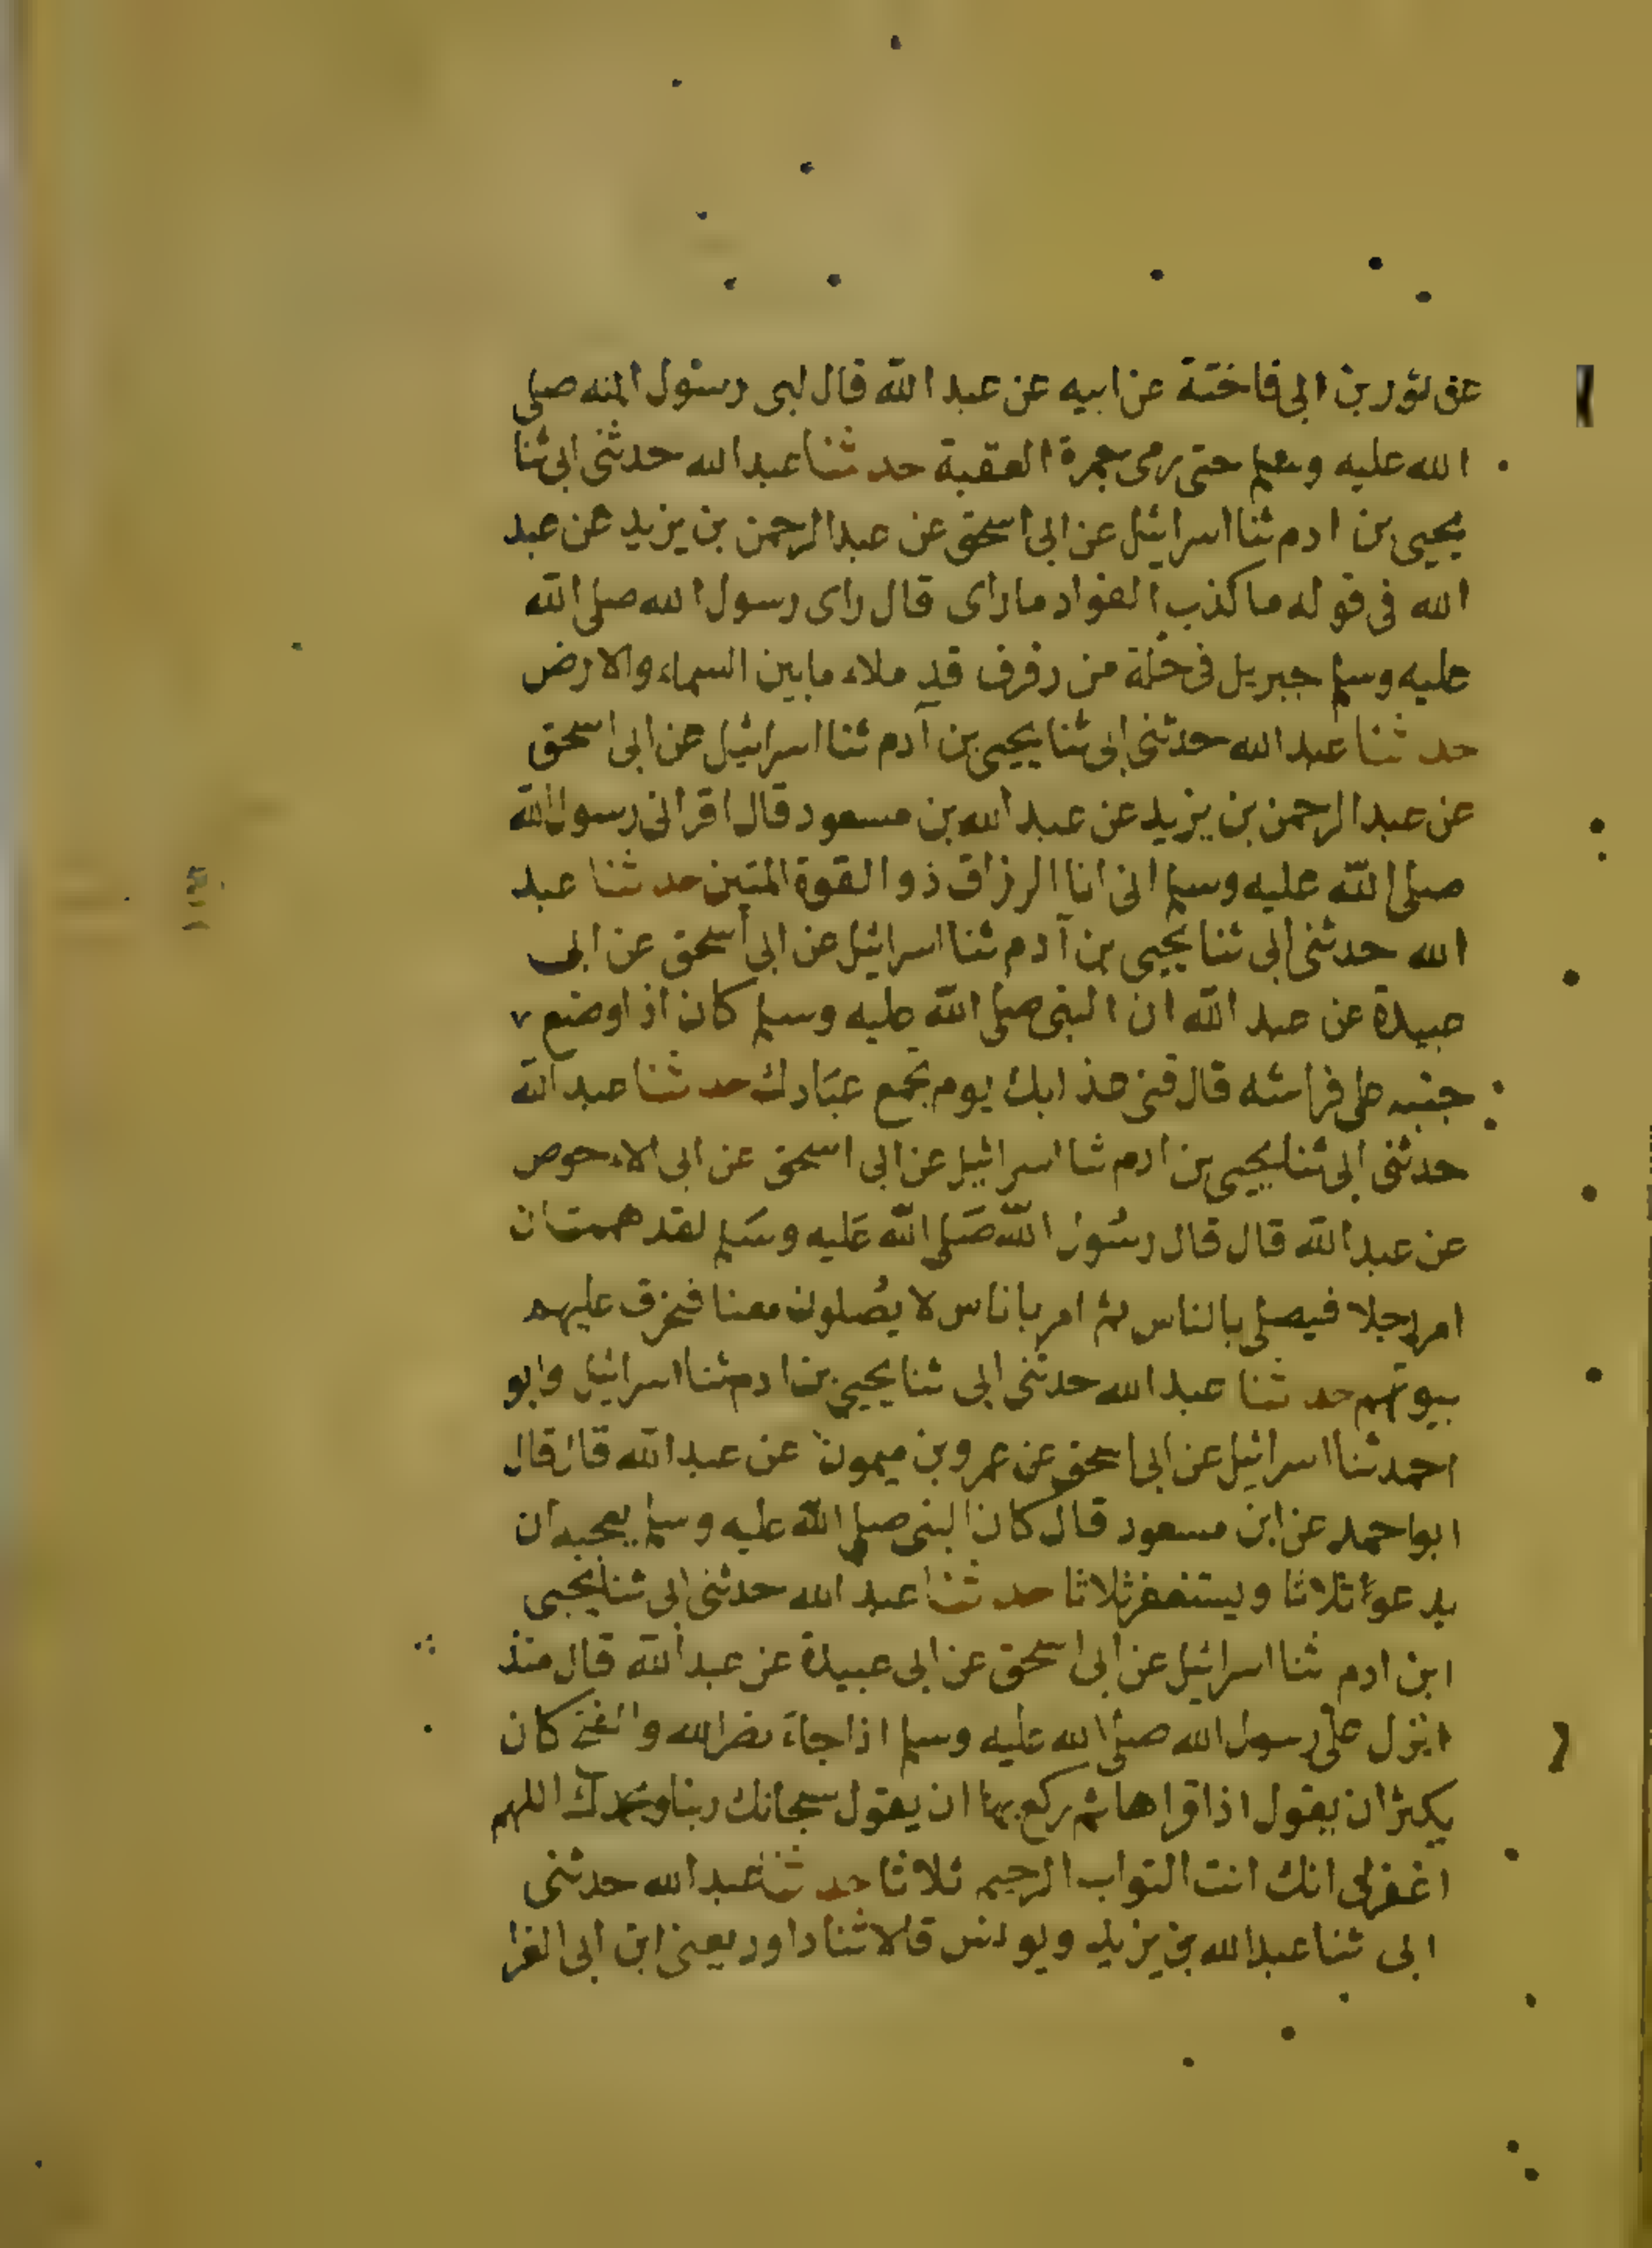 عن ثور بن ابى فاختة عن ابيه عن عبد الله قال لبى رسول الله صلى
الله عليه وسلم حتى رمى جمرة العقبة حدثنا عبد الله حدثنى ابى ثنا
يحيى بن ادم ثنا اسرائيل عن ابى اسحق عن عبد الرحمن بن يزيد عن عبد
الله فى قوله ما كذب الفواد ما راى قال راى رسول الله صلى الله
عليه وسلم جبريل فى حلة من رفرف قد ملاء ما بين السماء والارض
حدثنا عبد الله حدثنى ابى ثنا يحيى بن آدم ثنا اسرائيل عن ابى اسحق
عن عبد الرحمن بن يزيد عن عبد الله بن مسعود قال اقرانى رسول الله
صلى الله عليه وسلم انى انا الرزاق ذو القوة المتين حدثنا عبد
الله حدثنى ابى ثنا يحيى بن آدم ثنا اسرائيل عن ابى أسحق عن ابى
عبيدة عن عبد الله ان النبى صلى الله عليه وسلم كان اذا وضع
جنبه على فراشه قال قنى عذابك يوم تجمع عبَادك حدثنا عبد الله
حدثنى ابى ثنا يحيى بن ادم ثنا اسرائيل عن ابى اسحق عن ابى الاحوص
عن عبد الله قال قال رسُول الله صَلى الله عَليه وسَلم لقد هممت ان
امر رجلا فيصلى بالناس ثم امر باناس لا يصُلون معنا فتحرق عليهم
بيوتهم حدثنا عبد الله حدثنى ابى ثنا يحيى بن ادم ثنا اسرائيل وابو
احمد ثنا اسرائيل عن ابى اسحق عن عمرو بن ميمون عن عبد الله قال قال
ابو احمد عن ابن مسعود قال كان النبى صلى الله عليه وسلم يعجبه ان
يدعوا ثلاثا ويستغفر ثلاثا حدثنا عبد الله حدثنى ابى ثنا يحيى
ابن ادم ثنا اسرائيل عن ابى اسحق عن ابى عبيدة عن عبد الله قال منذ
انزل على رسول الله صلى الله عليه وسلم اذا جاءَ نصر الله والفتح كان
يكثر ان يقول اذا قراها ثم ركع بها ان يقول سبحانك ربنا وبحمدك اللهم
اغفرلى انك انت التواب الرحيم ثلاثا حدثنا عبد الله حدثنى
ابى ثنا عبد الله بن يزيد ويونس قالا ثنا داود يعنى ابن ابى الفرا